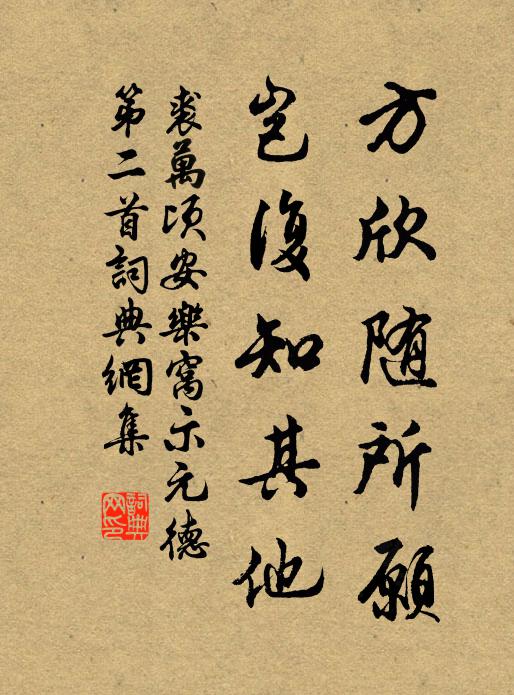 方欣随所願
岂復知其他
裘萬頃安樂窩示元德
第二首詞典網集
詞典网印